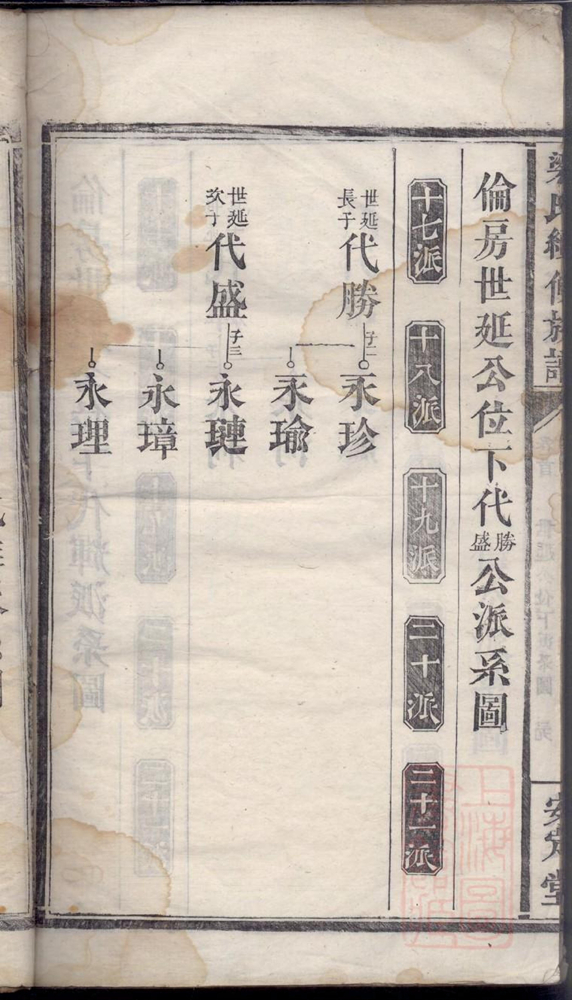 梁氏續修族譜
安定堂
倫房世延公位下代勝盛公派系圖
十七派
十八派
十九派
二十派
二十一派
世延長子代勝子二
永珍
永瑜
世延次子代盛子三
永璉
永璋
永理